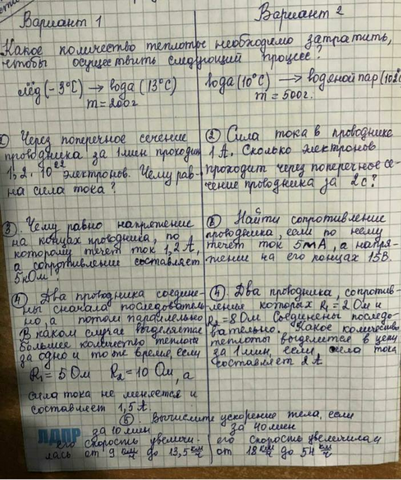 Вариант 1
Вариант 2
Какое количество теплоты необходимо затратить,
чтобы осуществить следующий процесс?
лёд (-3°С) → вода (13°С)
m = 200г
вода (10°С) → водяной пар (102°
m = 500г.
② Через поперечное сечение
проводника за 1 мин проходит
1,2 · 10²² электронов. Чему рав-
на сила тока?
② Сила тока в проводнике
1 А. Сколько электронов
проходит через поперечное се-
чение проводника за 2 с?
③ Чему равно напряжение
на концах проводника, по
которому течет ток 1,2 А,
а сопротивление составляет
5кОм
③ Найти сопротивление
проводника, если по нему
течет ток 5мА, а напря-
жение на его концах 15В.
④ Два проводника соедине-
ны сначала последователь-
но, а потом параллельно
В каком случае выделяется
большее количество теплоты
за одно и то же время, если
R₁ = 5 Ом R₂ = 10 Ом, а
сила тока не меняется и
составляет 1,5 А
④ Два проводника, сопротив-
ления которых R₁ = 2 Ом и
R₂ = 8 Ом соединены последо-
вательно. Какое количество
теплоты выделится в цепи
за 1 мин, если сила тока
составляет 2 А
⑤ Вычислите ускорение тела, если
за 10 мин
за 40 мин
его скорость увеличи-
лась от 9 км/ч до 13,5 км/ч
его скорость увеличилась
от 18 км/ч до 54 км/ч
ЛДПР